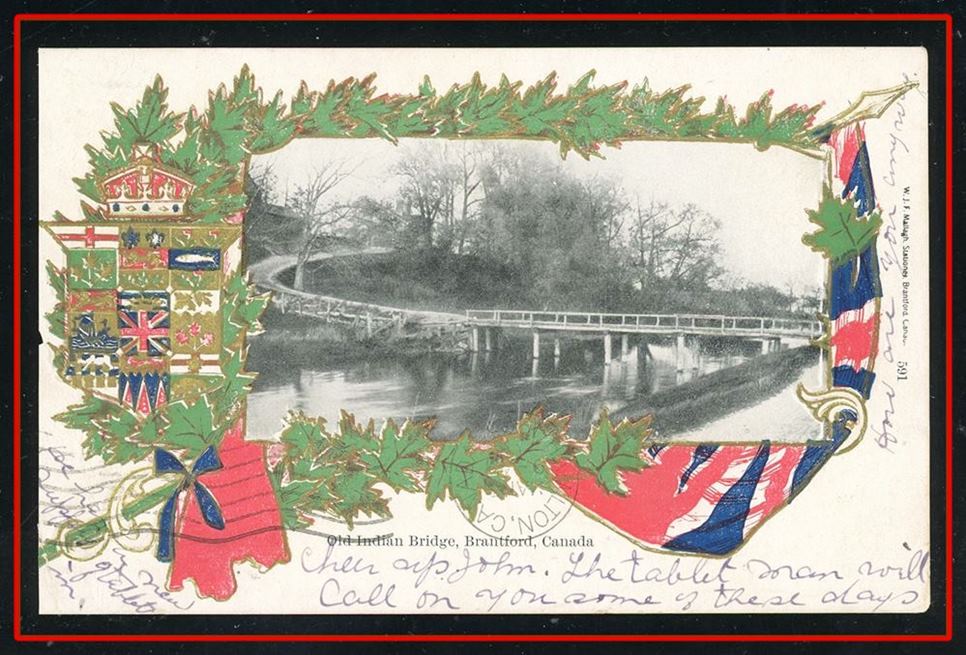 W. J. F. Mallagh, Stationer, Brantford, Canada.
591
How are your
LTON, CA
Old Indian Bridge, Brantford, Canada
Cheer up John. The tablet man will
Call on you some of these days